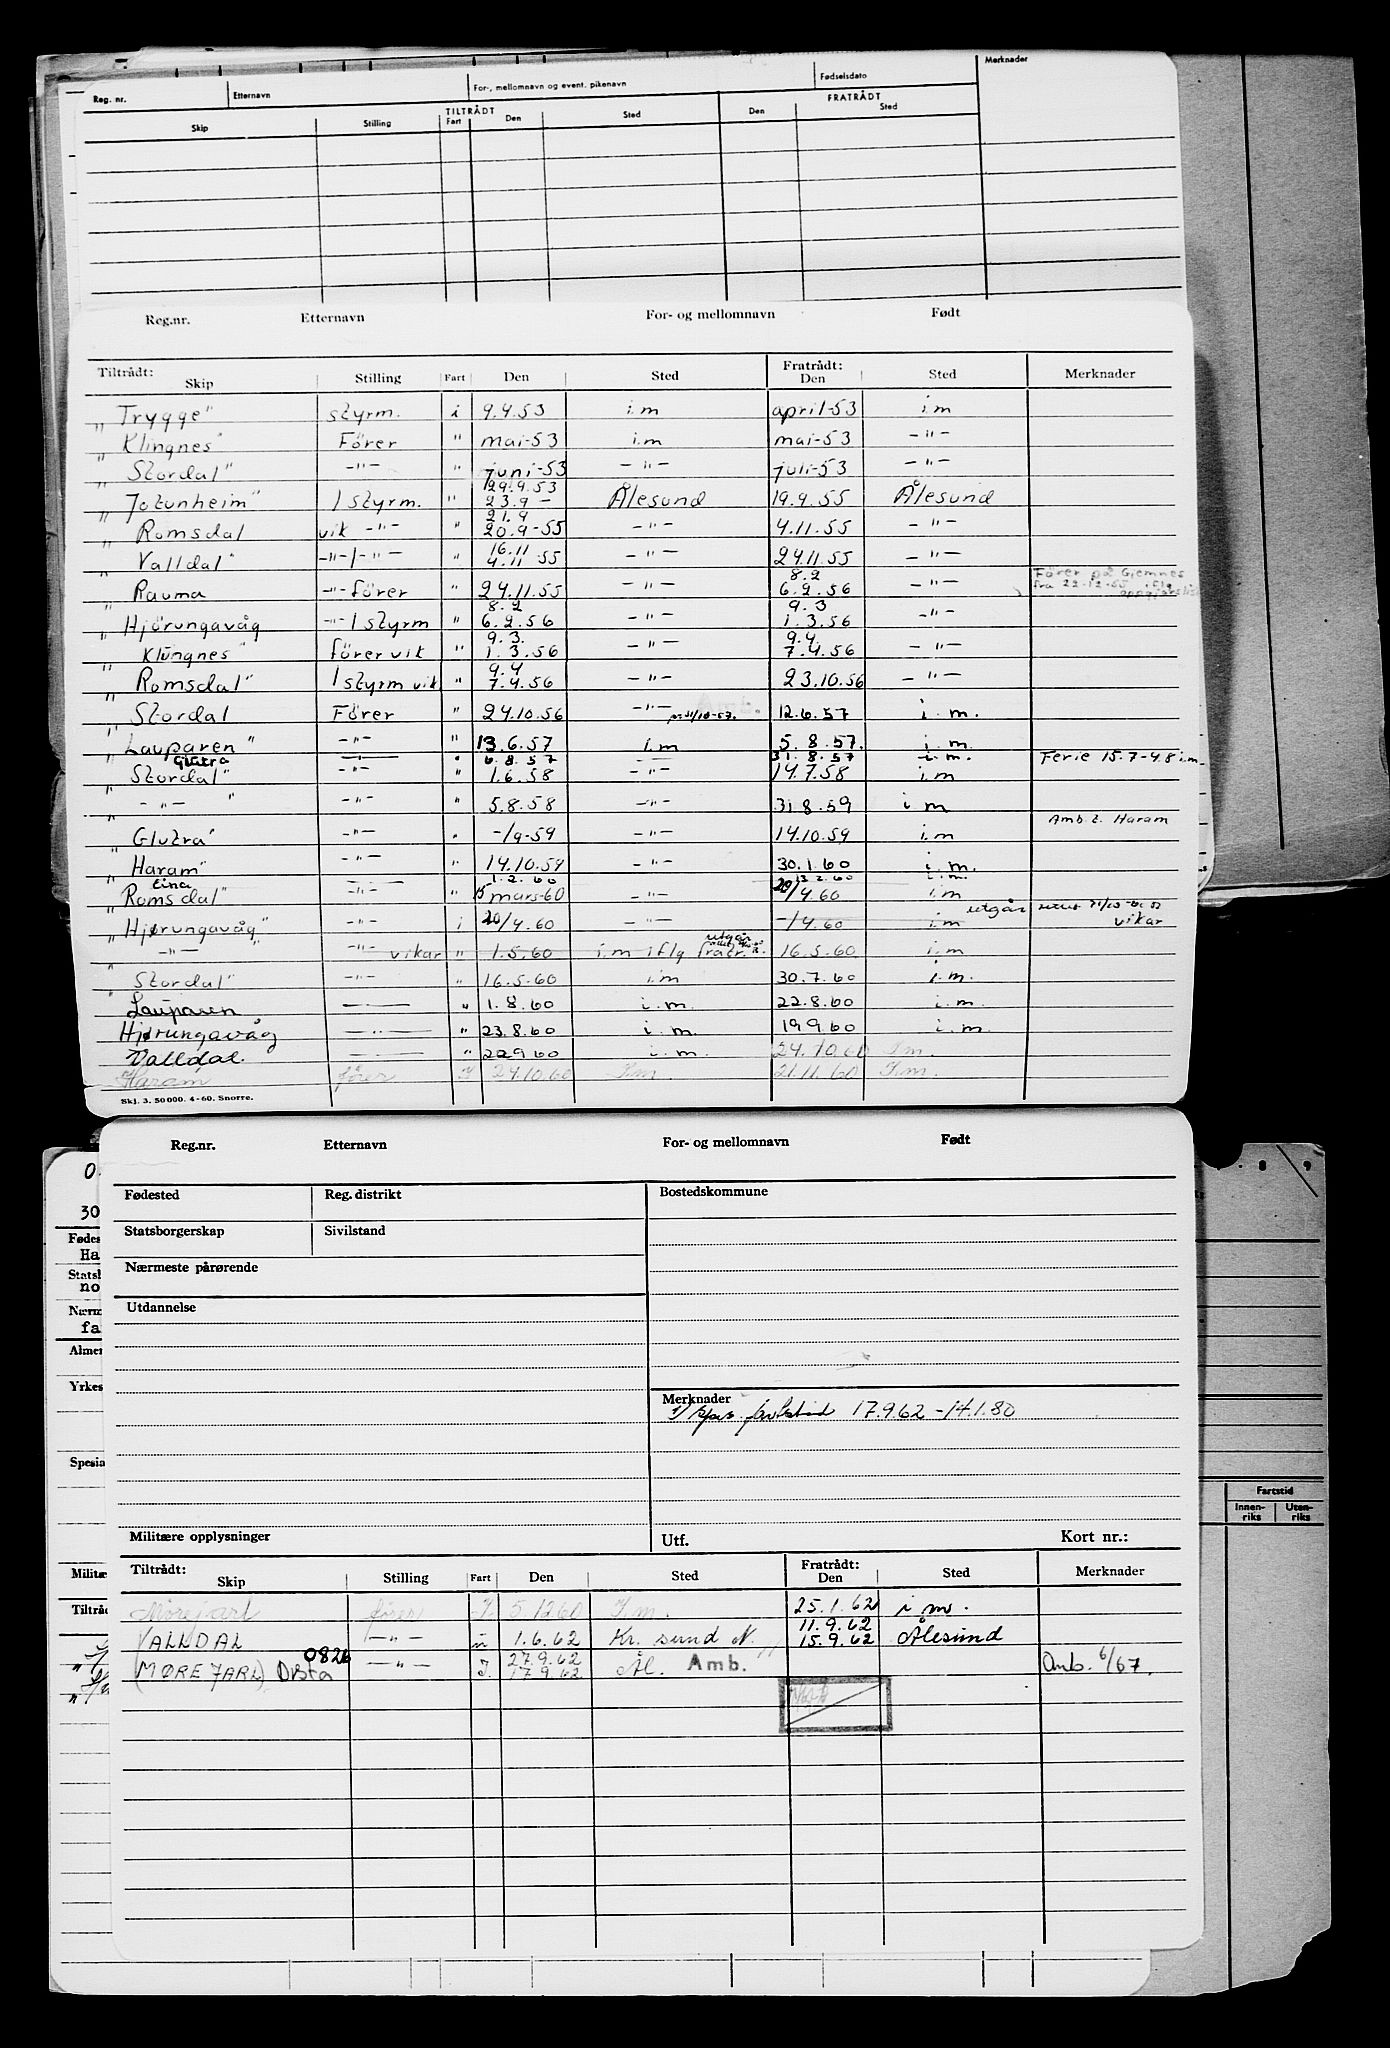 Reg. nr. Etternavn For-, mellomnavn og event. pikenavn Fødselsdato Merknader
TILTRÅDT FRATRÅDT
Skip Stilling Fart Den Sted Den Sted
Reg.nr. Etternavn For- og mellomnavn Født
Tiltrådt: Fratrådt:
Skip Stilling Fart Den Sted Den Sted Merknader
„ Trygge" styrm. i 9.4.53 i.m april-53 i.m
„ Klingnes" Förer " mai-53 i.m mai-53 -"-
„ Stordal" -"- " juni-53 -"- juli-53 -"-
29.9.53
„ Jotunheim" 1 styrm. " 23.9 - Ålesund 19.9.55 Ålesund
21.9
„ Romsdal vik -"- " 20.9-55 -"- 4.11.55 -"-
16.11
„ Valldal" -"-1-"- " 4.11 55 -"- 24.11.55 -"-
8.2 Förer på Gjemnes
„ Rauma -"- förer " 24.11.55 -"- 6.2.56 -"- fra 22-12-55 iflg
8.2 9.3
„ Hjörungavåg -"- 1 styrm " 6.2.56 -"- 1.3.56 -"-
9.3. 9.4.
„ Klungnes" förer vik " 1.3.56 -"- 7.4.56 -"-
9.4
„ Romsdal" 1 styrm vik " 7.4.56 -"- 23.10.56 -"-
„ Stordal Förer " 24.10.56 -"- 12.6.57 i.m.
„ Lauparen" -"- " 13.6.57 i.m 5.8.57. i.m.
Glutra " 6.8.57 31.8.57 i.m. Ferie 15.7-4.8 i.m.
„ Stordal" -"- " 1.6.58 -"- 14.7.58 i.m
„ -"- " -"- " 5.8.58 -"- 31.8.59 i.m
Amb. t. Haram
„ Glutra" -"- " -/9-59 -"- 14.10.59 i.m
„ Haram" -"- " 14.10.59 -"- 30.1.60 i.m.
1.2.60 13.2.60 i.m.
„ Romsdal" -"- " 15 mars-60 -"- 20/4.60 i.m
„ Hjørungavåg" -"- i 20/4.60 -"- -/4.60 i.m utgår vikar
„ -"- " -"- vikar " 1.5.60 i.m iflg fratr. 16.5.60 i.m
„ Stordal" -"- " 16.5.60 i.m 30.7.60 i.m.
Lauparen -"- " 1.8.60 i.m. 22.8.60 i.m.
Hjørungavåg -"- " 23.8.60 i.m. 19 9.60 i.m.
Valldal. -"- " 22.9 60 i.m. 24.10.60 I.m.
Haram fører I 24.10.60 I.m 21.11.60 I.m.
Skj. 3. 50 000. 4-60. Snorre.
Reg.nr. Etternavn For- og mellomnavn Født
Fødested Reg. distrikt Bostedskommune
Statsborgerskap Sivilstand
Nærmeste pårørende
Utdannelse
Merknader
17.9.62 - 14.1.80
Militære opplysninger Utf. Kort nr.:
Tiltrådt: Fratrådt:
Skip Stilling Fart Den Sted Den Sted Merknader
Mørejarl fører I 5.12.60 I.m. 25.1.62 i m.
11.9.62
VALLDAL -"- 1.6.62 Kr. sund N. 15.9.62 Ålesund
0826 27.9.62
(MØREJARL) Drsta -"- I. 17.9.62 Ål. Amb. Amb. 6/67.
Fartstid
Innen-riks Uten-riks